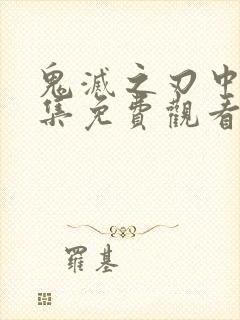 鬼滅之刃中
集免費觀看
羅基